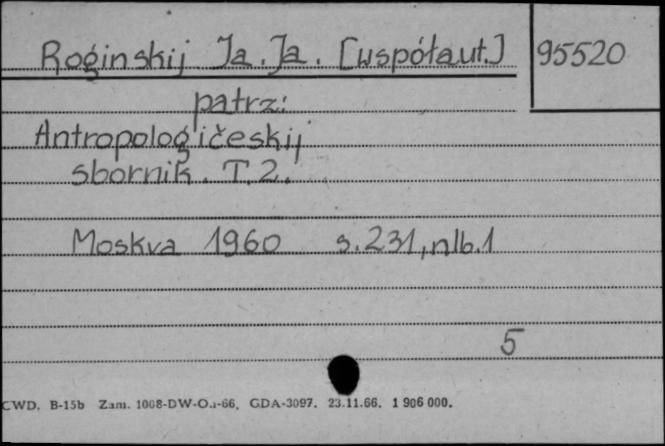 Roginskij Ja. Ja. [współaut.] 95520
patrz:
Antropologičeskij
sbornik. T. 2.
Moskva 1960 s. 231, nlb. 1
5
CWD. B-15b Zam. 1008-DW-O.-66, GDA-3097. 23.11.66. 1 906 000.